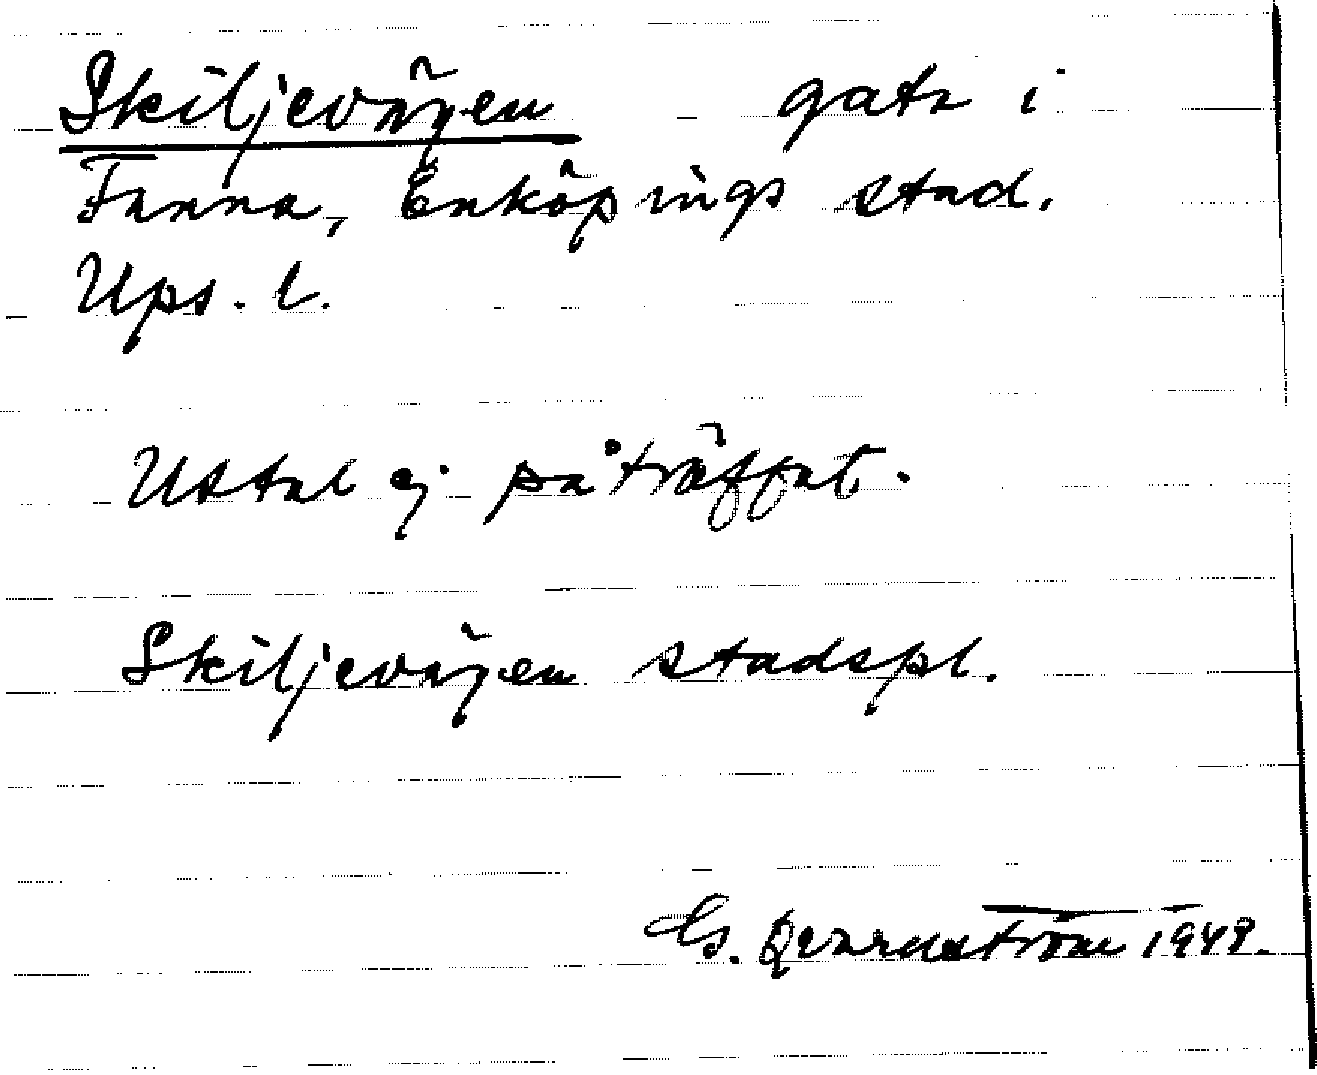 Skiljevägen gata i
Fanna, Enköpings stad.
Ups. l.
Uttal ej påträffat.
Skiljevägen stadspl.
G. Qvarnström 1948.